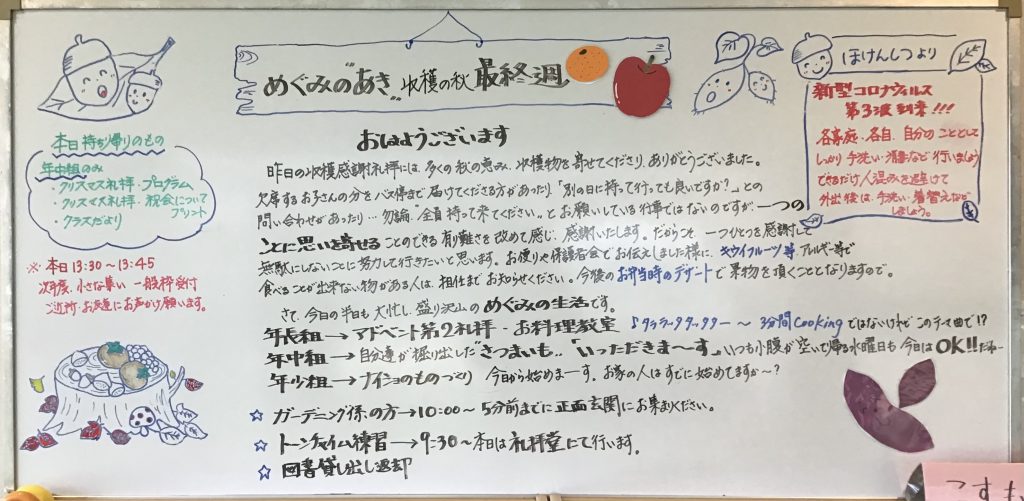 めぐみの"あき"収穫の秋 最終週
本日持ち帰りのもの
年中組のみ
・クリスマス礼拝・プログラム
・クリスマス礼拝・祝会について
プリント
・クラスだより
※本日13:30～13:45
次年度、小さな集い 一般枠受付
ご近所・お友達にお声がけ願います。
ほけんしつより
新型コロナウィルス
第3波到来!!!
各家庭、各自、自分のこととして
しっかり手洗い・消毒など行いましょう
できるだけ人混みを避けて
外出後は、手洗い・着替えなど
しましょう。
おはようございます
昨日の収穫感謝礼拝には、多くの秋の恵み、収穫物を寄せてくださり、ありがとうございました。
欠席するお子さんの分をバス停まで届けてくださる方があったり、「別の日に持って行っても良いですか?」との
問い合わせがあったり…勿論、"全員持って来てください"とお願いしている行事ではないのですが、一つの
ことに思いを寄せることのできる有難さを改めて感じ、感謝いたします。だからこそ、一つひとつを感謝して
無駄にしないことに努力して行きたいと思います。お便りや保護者会でお伝えしました様に、キウイフルーツ等、アレルギー等で
食べることが出来ない物がある人は、担任までお知らせください。今後のお弁当時のデザートで果物を頂くこととなりますので。
さて、今日の半日も大忙し、盛り沢山のめぐみの生活です。
年長組→アドベント第2礼拝・お料理教室 ♪タララッタタッタター～3分間cookingではないけれどこのテーマ曲で!?
年中組→自分達が掘り出した"さつまいも"…「いっただきま～す」いつも小腹が空いて帰る水曜日も今日はOK!!だね～
年少組→ナイショのものづくり 今日から始めまーす。お家の人はすでに始めてますか～?
☆ガーデニング係の方→10:00～5分前までに正面玄関にお集まりください。
☆トーンチャイム練習→9:30～本日は礼拝堂にて行います。
☆図書貸し出し返却
こすも